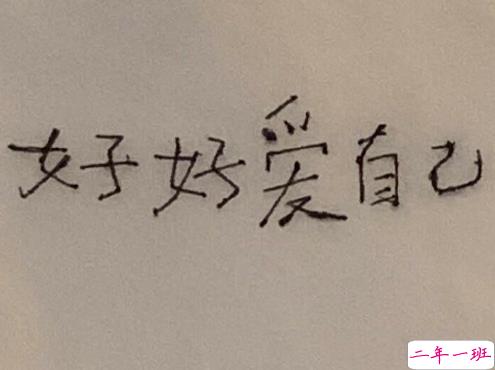 好好爱自己
二年一班